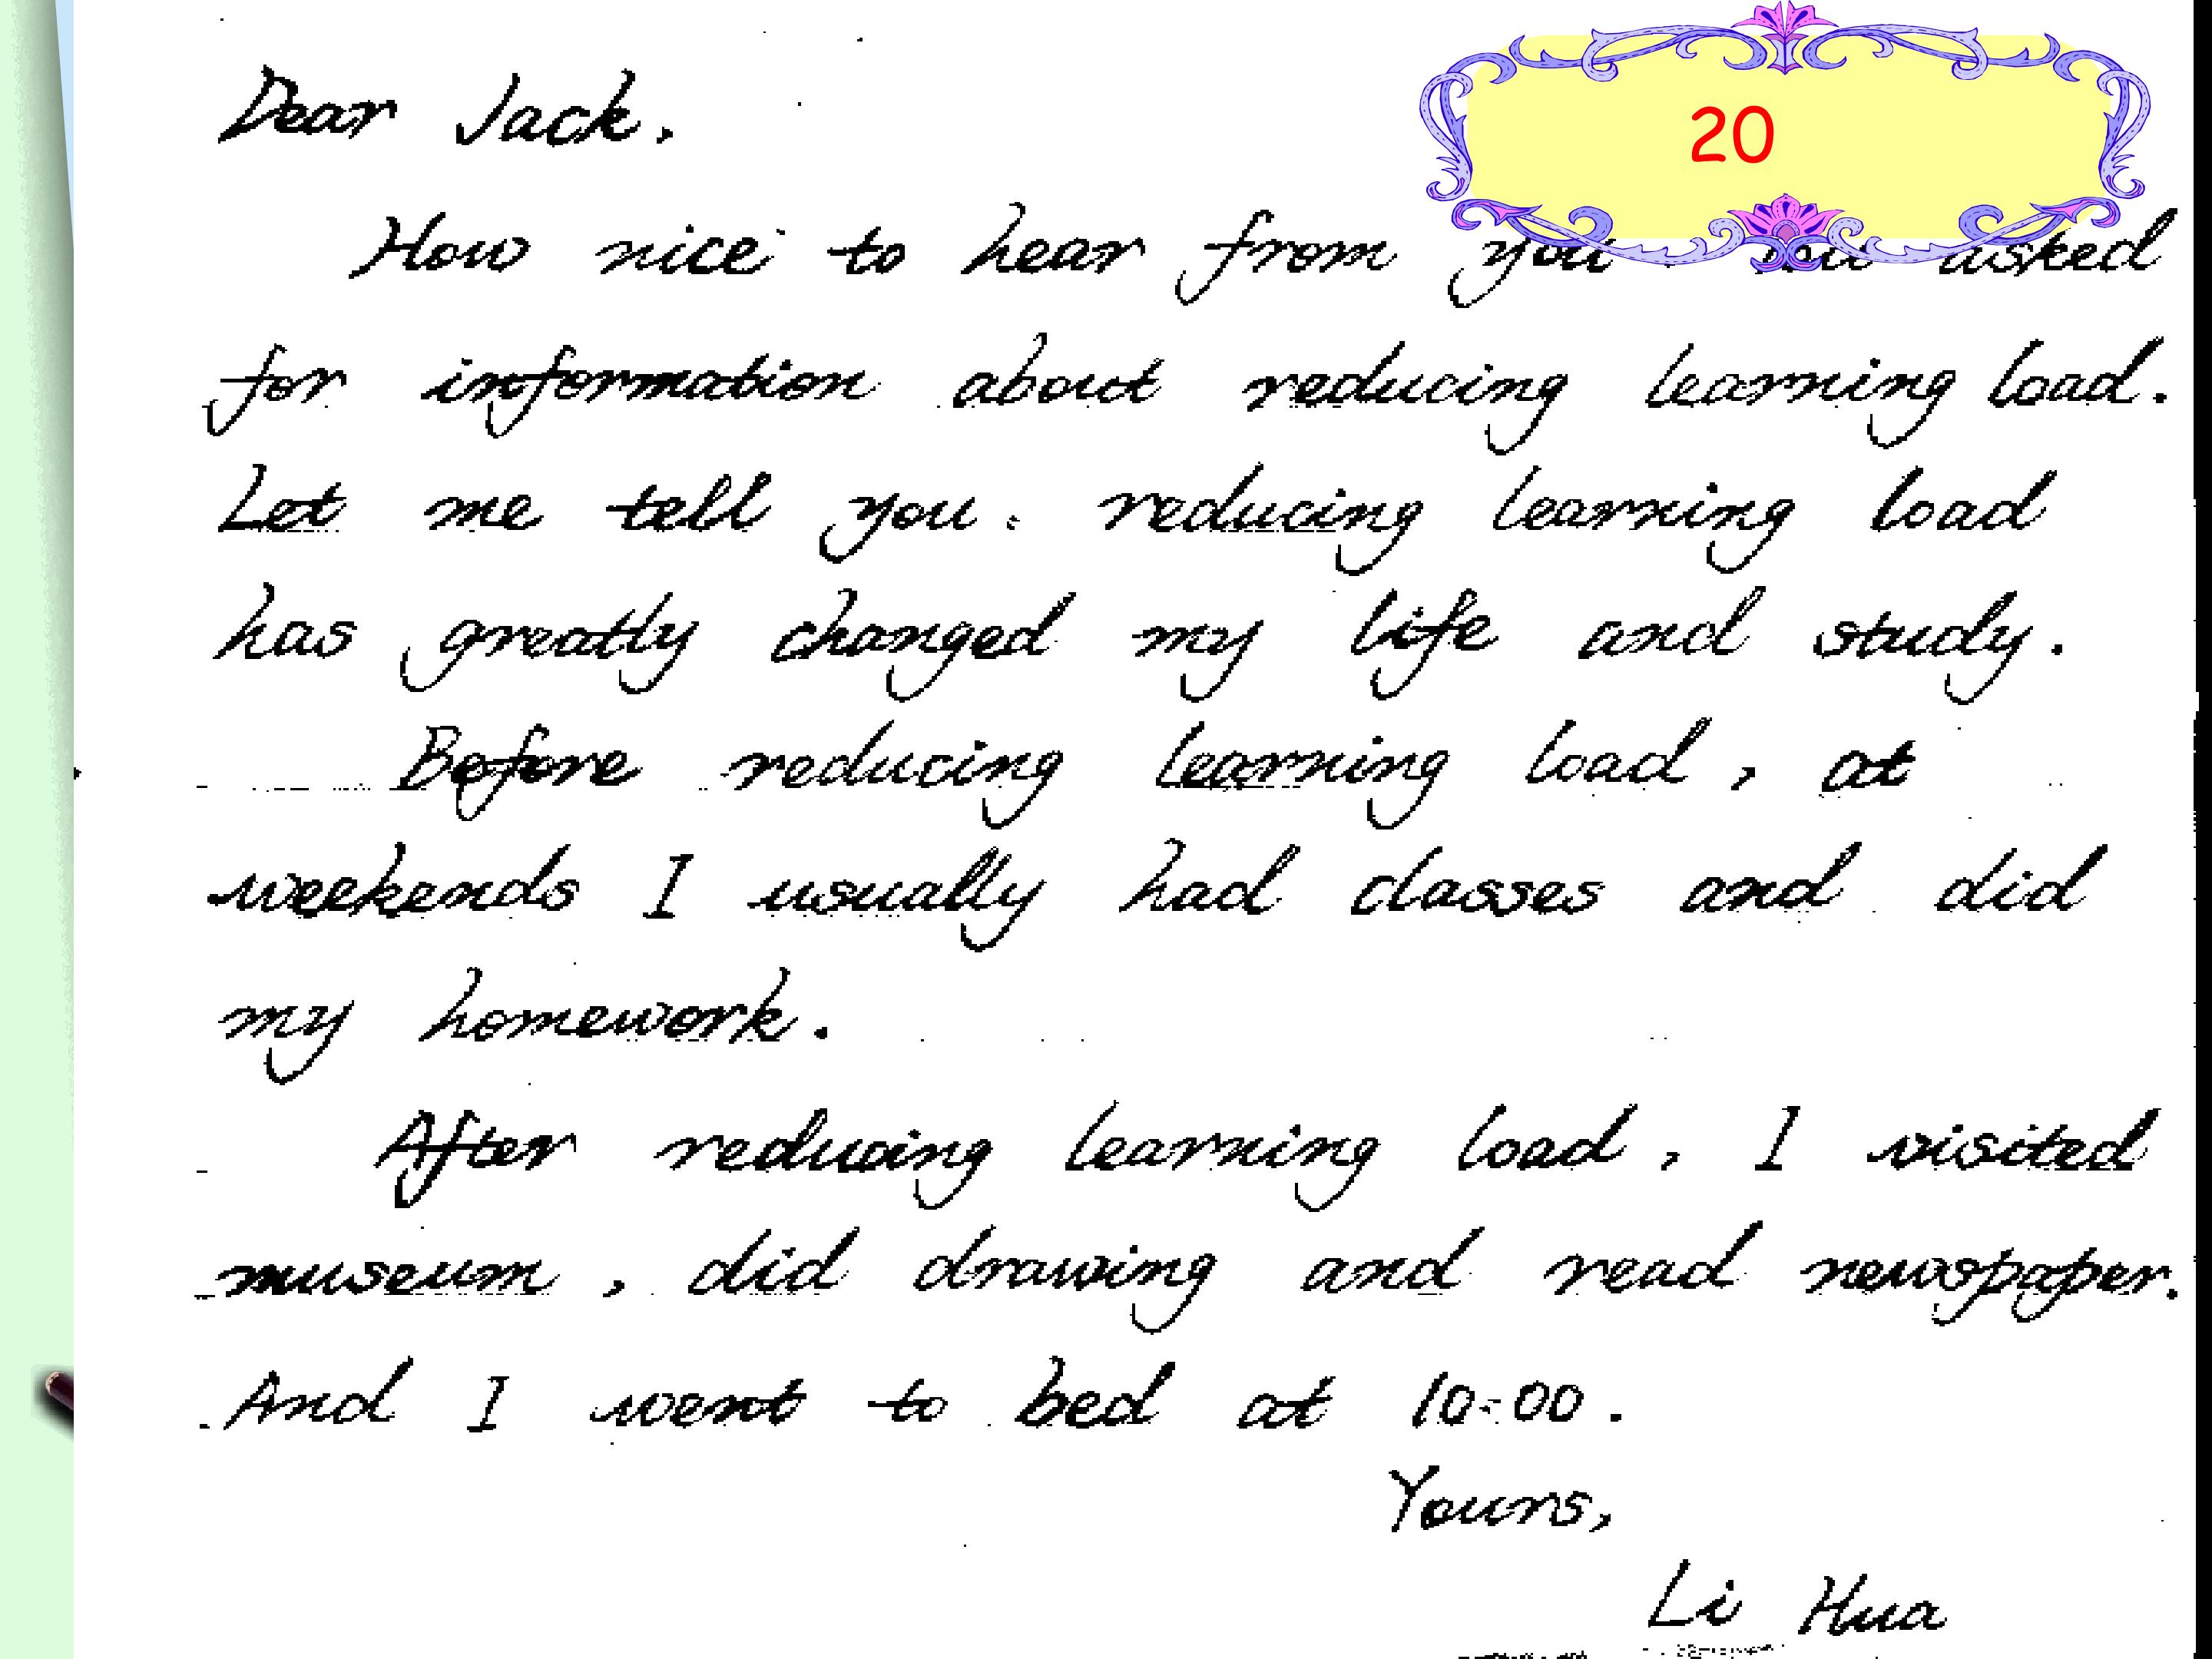 20
Dear Jack.
How nice to hear from you. You asked
for information about reducing learning load.
Let me tell you. reducing learning load
has greatly changed my life and study.
Before reducing learning load, at
weekends I usually had classes and did
my homework.
After reducing learning load, I visited
museum, did drawing and read newspaper.
And I went to bed at 10:00.
Yours,
Li Hua